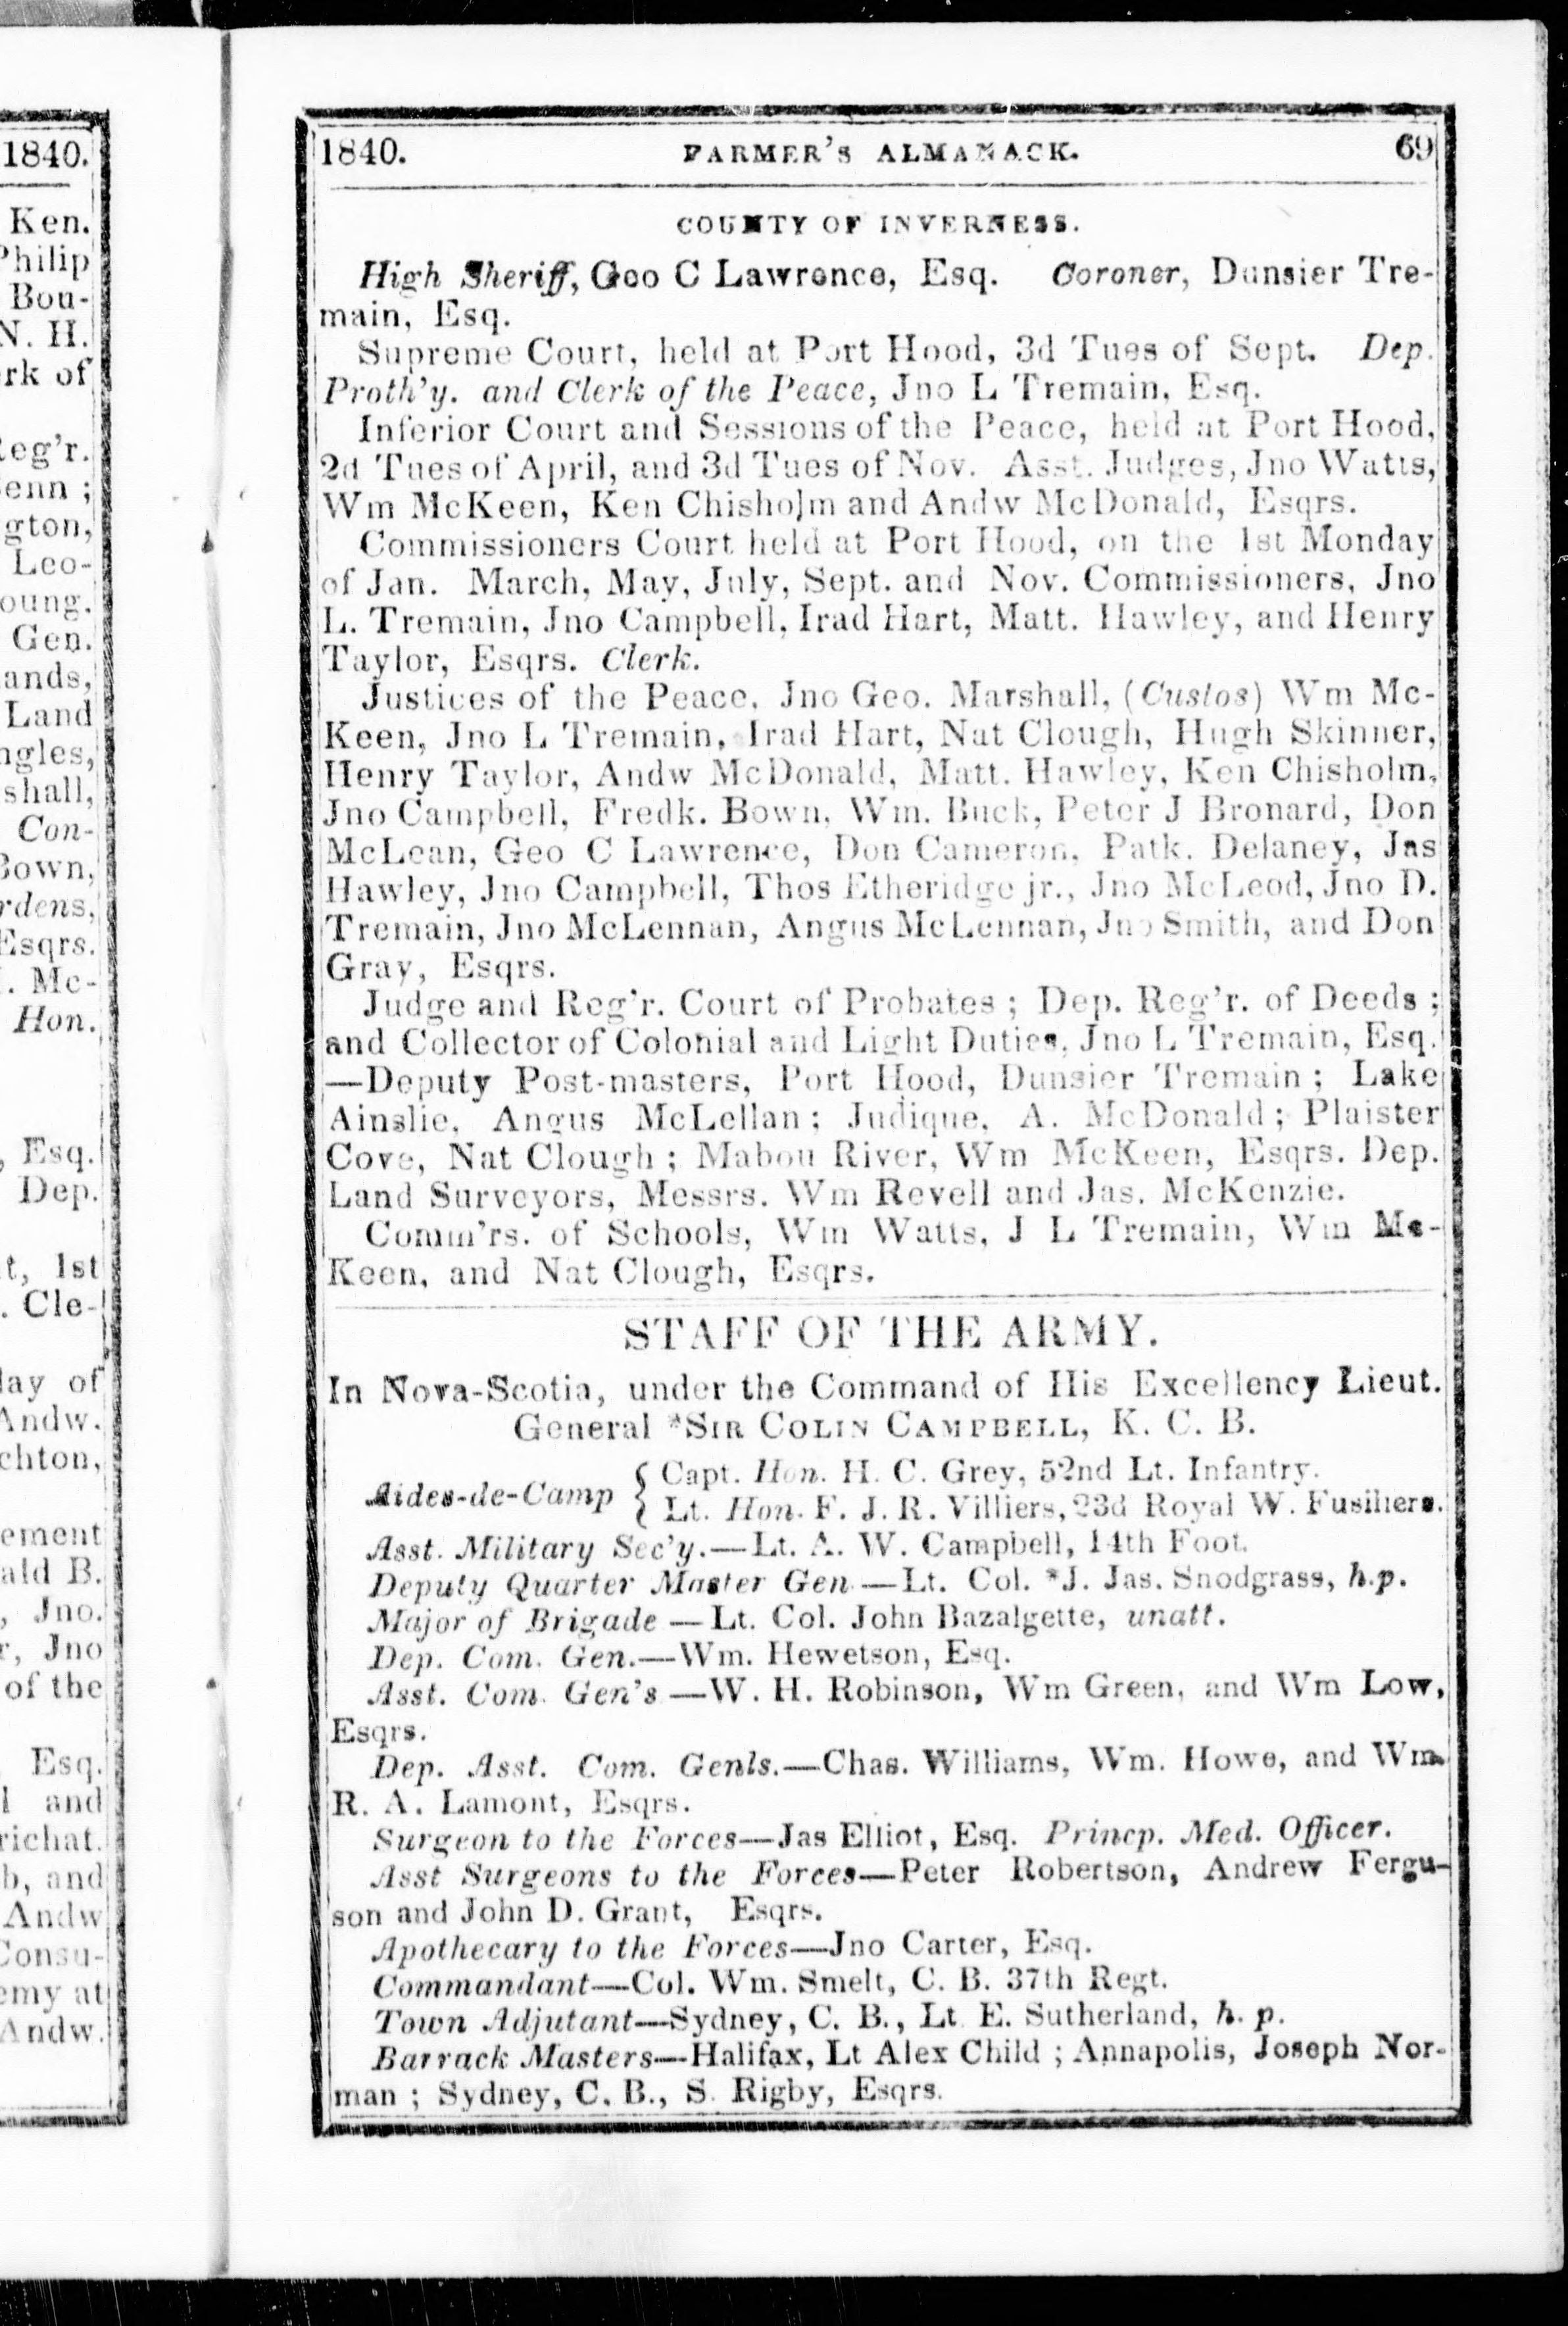 1840.
Ken.
Philip
Bou-
N. H.
rk of
Reg'r.
enn ;
gton,
Leo-
oung.
Gen.
ands,
Land
ngles,
shall,
Con-
Bown,
rdens,
Esqrs.
. Mc-
Hon.
, Esq.
Dep.
t, 1st
. Cle-
lay of
Andw.
chton,
ement
ald B.
, Jno.
r, Jno
of the
Esq.
l and
richat.
b, and
Andw
Consu-
emy at
Andw.
1840. FARMER'S ALMANACK. 69
COUNTY OF INVERNESS.
High Sheriff, Geo C Lawrence, Esq. Coroner, Dunsier Tre-
main, Esq.
Supreme Court, held at Port Hood, 3d Tues of Sept. Dep.
Proth'y. and Clerk of the Peace, Jno L Tremain, Esq.
Inferior Court and Sessions of the Peace, held at Port Hood,
2d Tues of April, and 3d Tues of Nov. Asst. Judges, Jno Watts,
Wm McKeen, Ken Chisholm and Andw McDonald, Esqrs.
Commissioners Court held at Port Hood, on the 1st Monday
of Jan. March, May, July, Sept. and Nov. Commissioners, Jno
L. Tremain, Jno Campbell, Irad Hart, Matt. Hawley, and Henry
Taylor, Esqrs. Clerk.
Justices of the Peace, Jno Geo. Marshall, (Custos) Wm Mc-
Keen, Jno L Tremain, Irad Hart, Nat Clough, Hugh Skinner,
Henry Taylor, Andw McDonald, Matt. Hawley, Ken Chisholm,
Jno Campbell, Fredk. Bown, Wm. Buck, Peter J Bronard, Don
McLean, Geo C Lawrence, Don Cameron, Patk. Delaney, Jas
Hawley, Jno Campbell, Thos Etheridge jr., Jno McLeod, Jno D.
Tremain, Jno McLennan, Angus McLennan, Jno Smith, and Don
Gray, Esqrs.
Judge and Reg'r. Court of Probates ; Dep. Reg'r. of Deeds ;
and Collector of Colonial and Light Duties, Jno L Tremain, Esq.
—Deputy Post-masters, Port Hood, Dunsier Tremain ; Lake
Ainslie, Angus McLellan ; Judique, A. McDonald ; Plaister
Cove, Nat Clough ; Mabou River, Wm McKeen, Esqrs. Dep.
Land Surveyors, Messrs. Wm Revell and Jas. McKenzie.
Comm'rs. of Schools, Wm Watts, J L Tremain, Wm Mc-
Keen, and Nat Clough, Esqrs.
STAFF OF THE ARMY.
In Nova-Scotia, under the Command of His Excellency Lieut.
General *SIR COLIN CAMPBELL, K. C. B.
Aides-de-Camp { Capt. Hon. H. C. Grey, 52nd Lt. Infantry.
Lt. Hon. F. J. R. Villiers, 23d Royal W. Fusiliers.
Asst. Military Sec'y.—Lt. A. W. Campbell, 14th Foot.
Deputy Quarter Master Gen —Lt. Col. *J. Jas. Snodgrass, h.p.
Major of Brigade — Lt. Col. John Bazalgette, unatt.
Dep. Com. Gen.—Wm. Hewetson, Esq.
Asst. Com. Gen's —W. H. Robinson, Wm Green, and Wm Low,
Esqrs.
Dep. Asst. Com. Genls.—Chas. Williams, Wm. Howe, and Wm.
R. A. Lamont, Esqrs.
Surgeon to the Forces—Jas Elliot, Esq. Princp. Med. Officer.
Asst Surgeons to the Forces—Peter Robertson, Andrew Fergu-
son and John D. Grant, Esqrs.
Apothecary to the Forces—Jno Carter, Esq.
Commandant—Col. Wm. Smelt, C. B. 37th Regt.
Town Adjutant—Sydney, C. B., Lt E. Sutherland, h. p.
Barrack Masters—Halifax, Lt Alex Child ; Annapolis, Joseph Nor-
man ; Sydney, C. B., S. Rigby, Esqrs.